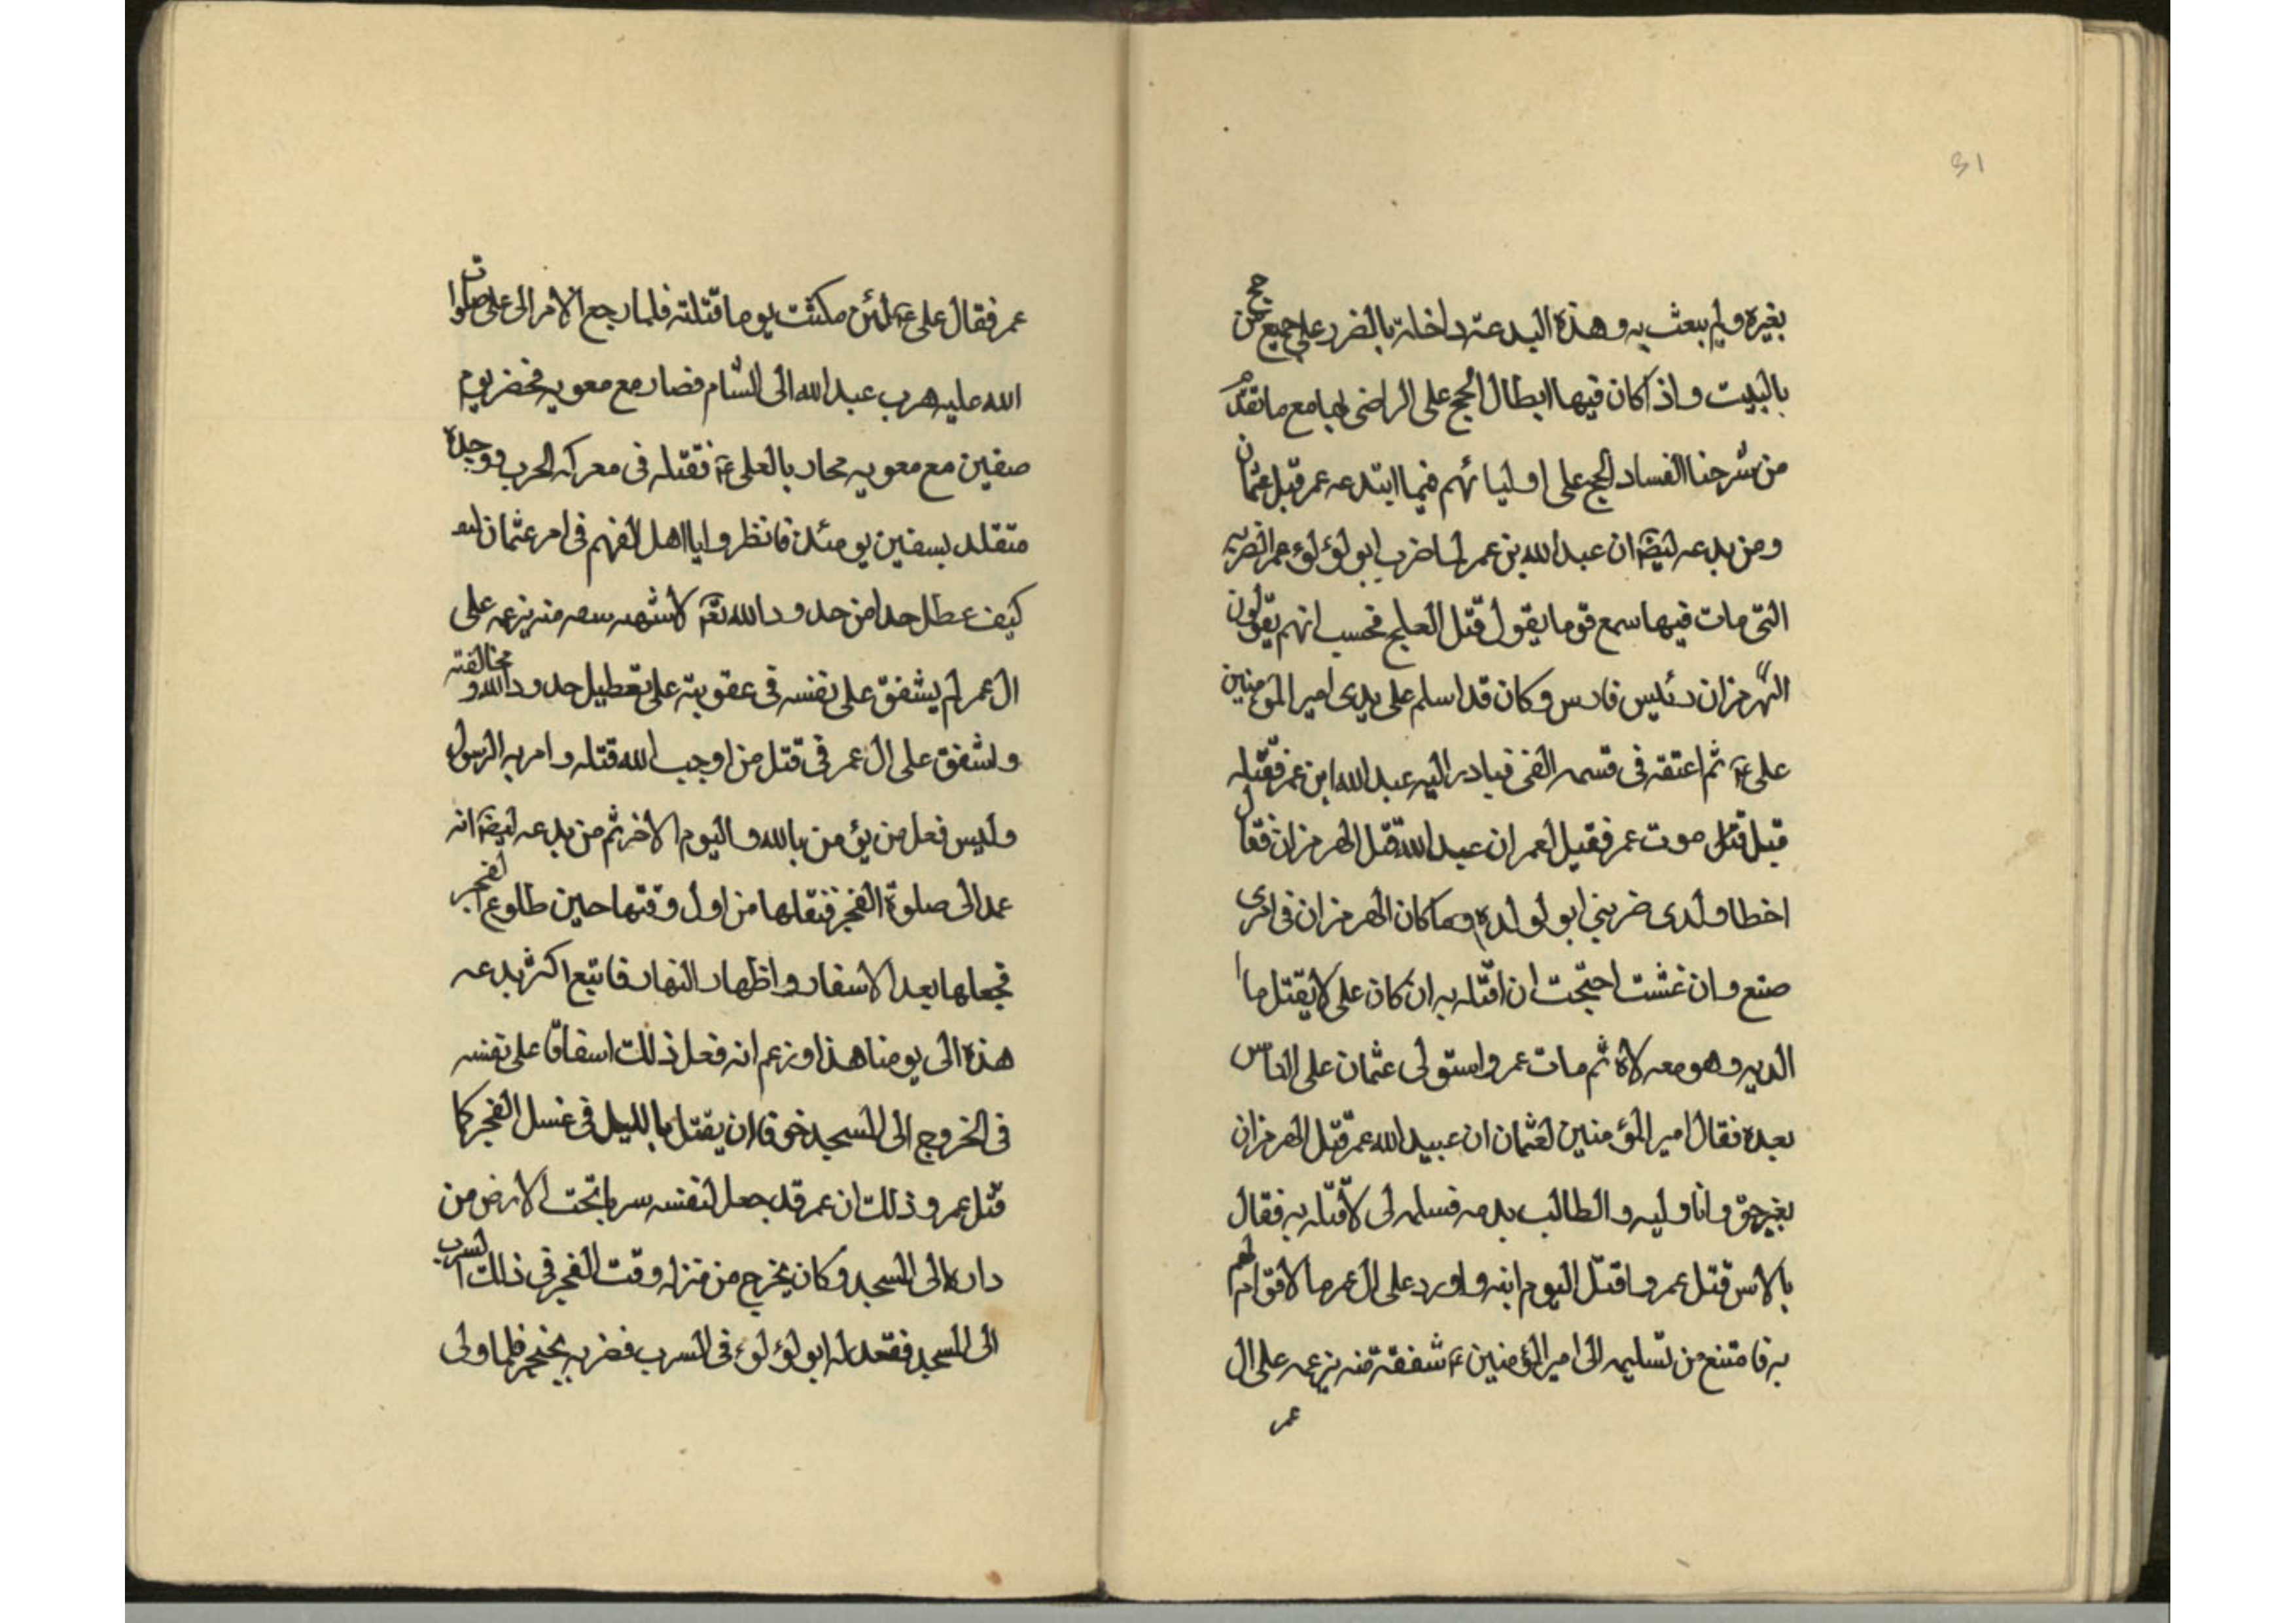 31
بغيره ولم يبعث به وهذه البدعة داخلة بالضرر على جميع من حج
بالبيت واذا كان فيها ابطال الحج على الراضى بها مع ما تقدم
من شرحنا الفساد الحج على اوليائهم فيما ابتدعه عمر قبل عثمان
ومن بدعه ايضا ان عبد الله بن عمر لما ضرب ابو لؤلؤ عمر الضربة
التى مات فيها سمع قوما يقول قتل العلج فحسب انهم يقولون
الهرمزان رئيس فارس وكان قد اسلم على يدى امير المؤمنين
على ع ثم اعتقه فى قسمه الفئ فبادر اليه عبد الله ابن عمر فقتله
قبل قتل موت عمر فقيل لعمر ان عبد الله قتل الهرمزان فقال
اخطا ولدى ضربنى ابو لولده وما كان الهرمزان فى امرى
صنع وان عشت احتجت ان اقتله به ان كان على لا يقتل ما
الديه وهو معه لاه ثم مات عمر واستولى عثمان على الناس
بعده فقال امير المؤمنين لعثمان ان عبيد الله عمر قتل الهرمزان
بغير حق وانا وليه والطالب بدمه فسلمه لى لاقتله به فقال
بالامس قتل عمر واقتل اليوم ابنه واورد على ال عمر ما لا قوام لهم
به فامتنع من تسليمه الى امير المؤمنين ع شفقة منه بزعمه على ال
عمر
عمر فقال على ع لئن مكثت يوما قتلته فلما رجع الامر الى على صلوات
الله عليه هرب عبد الله الى الشام فصار مع معويه فحضر يوم
صفين مع معويه محاربا لعلى ع فقتله فى معركه الحرب ووجده
متقلد بسفين يومئذ فانظروا يا اهل الفهم فى امر عثمان
كيف عطل حدا من حدود الله تع لاشهه سعه منه بزعمه على
ال عمر لم يشفق على نفسه فى عقوبته على تعطيل حدود الله ومخالفته
واشفق على ال عمر فى قتل من اوجب الله قتله وامر به الرسول
وليس فعل من يؤمن بالله واليوم الاخر ثم من بدعه ايضا انه
عمد الى صلوة الفجر فنقلها من اول وقتها حين طلوع الفجر
فجعلها بعد الاسفار واظهار النهار فاتبع اكثر بدعه
هذه الى يومنا هذا وزعم انه فعل ذلك اسفاقا على نفسه
فى الخروج الى المسجد خوفا ان يقتل بالليل فى غسل الفجر كما
قتل عمر وذلك ان عمر قد جعل لنفسه سربا تحت الارض من
داره الى المسجد وكان يخرج من منزله وقت الفجر فى ذلك السرب
الى المسجد فقعد له ابو لؤلؤ فى السرب فضربه بخنجر فلما ولى